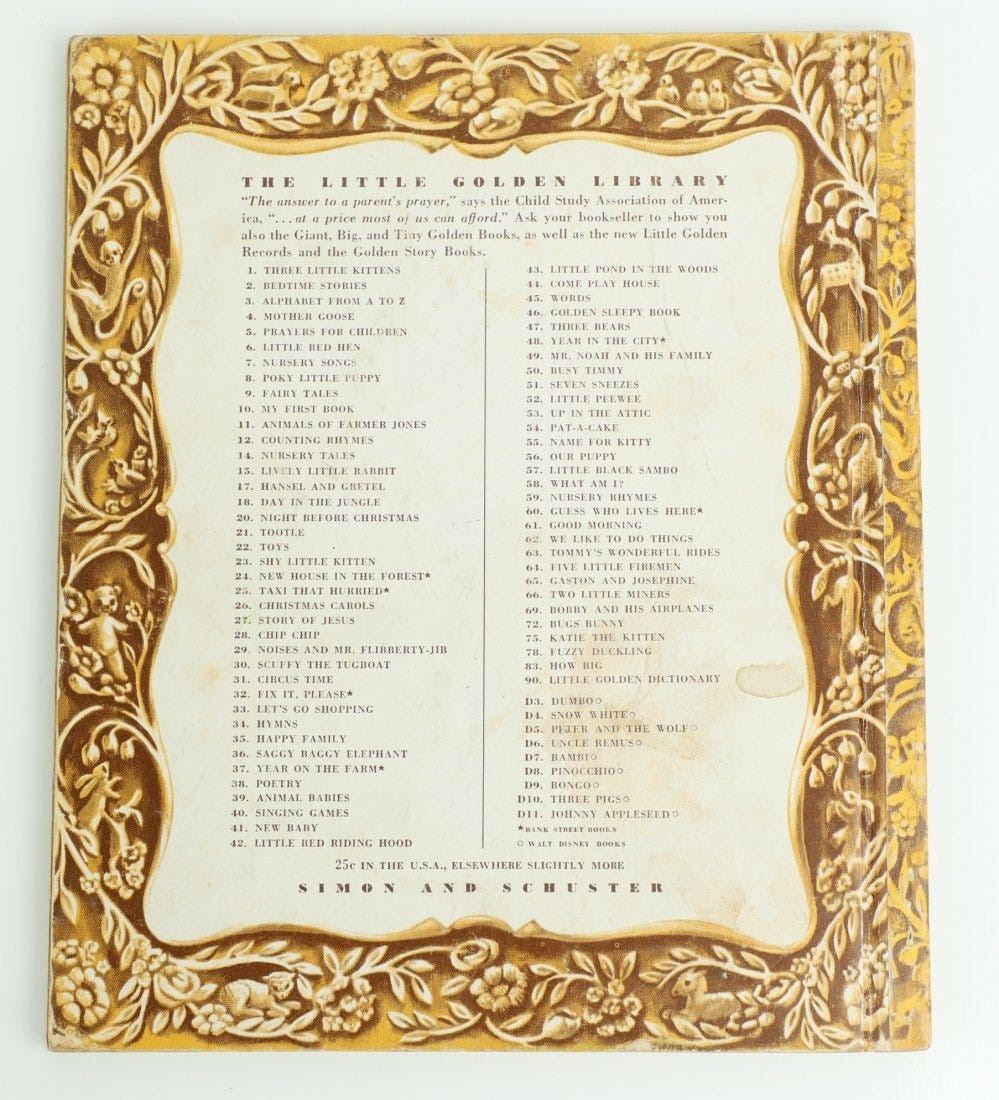 THE LITTLE GOLDEN LIBRARY
“The answer to a parent's prayer,” says the Child Study Association of Amer-
ica, “...at a price most of us can afford.” Ask your bookseller to show you
also the Giant, Big, and Tiny Golden Books, as well as the new Little Golden
Records and the Golden Story Books.
1. THREE LITTLE KITTENS
2. BEDTIME STORIES
3. ALPHABET FROM A TO Z
4. MOTHER GOOSE
5. PRAYERS FOR CHILDREN
6. LITTLE RED HEN
7. NURSERY SONGS
8. POKY LITTLE PUPPY
9. FAIRY TALES
10. MY FIRST BOOK
11. ANIMALS OF FARMER JONES
12. COUNTING RHYMES
14. NURSERY TALES
15. LIVELY LITTLE RABBIT
17. HANSEL AND GRETEL
18. DAY IN THE JUNGLE
20. NIGHT BEFORE CHRISTMAS
21. TOOTLE
22. TOYS
23. SHY LITTLE KITTEN
24. NEW HOUSE IN THE FOREST★
25. TAXI THAT HURRIED★
26. CHRISTMAS CAROLS
27. STORY OF JESUS
28. CHIP CHIP
29. NOISES AND MR. FLIBBERTY-JIB
30. SCUFFY THE TUGBOAT
31. CIRCUS TIME
32. FIX IT, PLEASE★
33. LET'S GO SHOPPING
34. HYMNS
35. HAPPY FAMILY
36. SAGGY BAGGY ELEPHANT
37. YEAR ON THE FARM★
38. POETRY
39. ANIMAL BABIES
40. SINGING GAMES
41. NEW BABY
42. LITTLE RED RIDING HOOD
43. LITTLE POND IN THE WOODS
44. COME PLAY HOUSE
45. WORDS
46. GOLDEN SLEEPY BOOK
47. THREE BEARS
48. YEAR IN THE CITY★
49. MR. NOAH AND HIS FAMILY
50. BUSY TIMMY
51. SEVEN SNEEZES
52. LITTLE PEEWEE
53. UP IN THE ATTIC
54. PAT-A-CAKE
55. NAME FOR KITTY
56. OUR PUPPY
57. LITTLE BLACK SAMBO
58. WHAT AM I?
59. NURSERY RHYMES
60. GUESS WHO LIVES HERE★
61. GOOD MORNING
62. WE LIKE TO DO THINGS
63. TOMMY'S WONDERFUL RIDES
64. FIVE LITTLE FIREMEN
65. GASTON AND JOSEPHINE
66. TWO LITTLE MINERS
69. BOBBY AND HIS AIRPLANES
72. BUGS BUNNY
75. KATIE THE KITTEN
78. FUZZY DUCKLING
83. HOW BIG
90. LITTLE GOLDEN DICTIONARY
D3. DUMBO○
D4. SNOW WHITE○
D5. PETER AND THE WOLF○
D6. UNCLE REMUS○
D7. BAMBI○
D8. PINOCCHIO○
D9. BONGO○
D10. THREE PIGS○
D11. JOHNNY APPLESEED○
★BANK STREET BOOKS
○ WALT DISNEY BOOKS
25c IN THE U.S.A., ELSEWHERE SLIGHTLY MORE
SIMON AND SCHUSTER